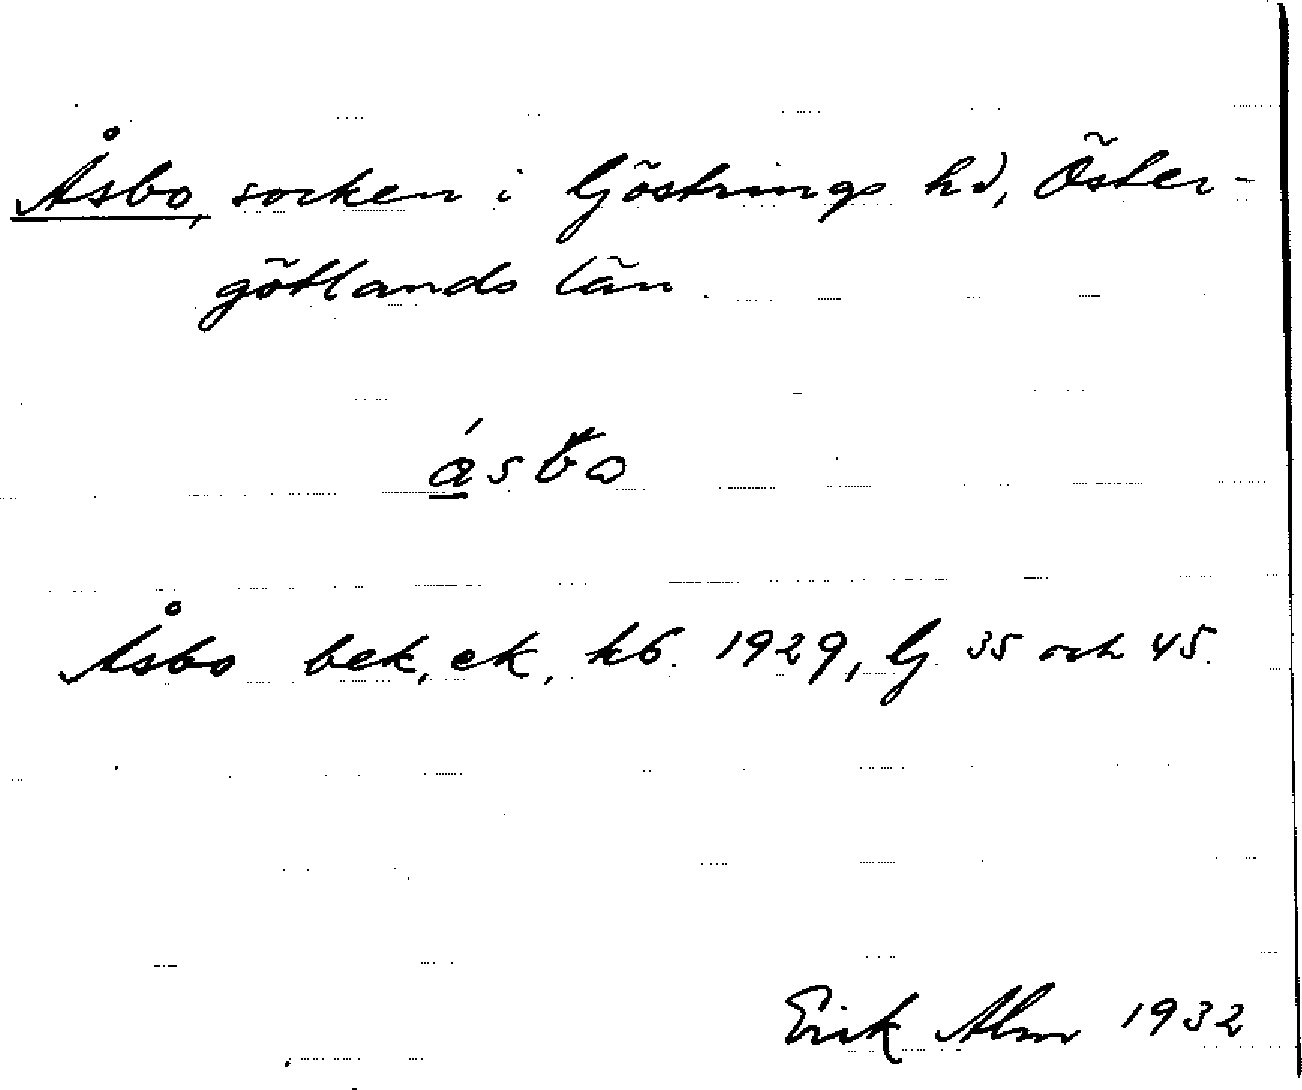 Åsbo, socken i Göstrings hd, Öster-
götlands län
ásbo
Åsbo bek, ek, kb. 1929, G 35 och 45.
Erik Alm 1932